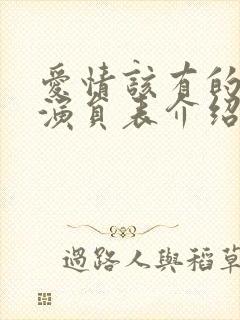 愛情該有的
演員表介紹
過路人與稻草